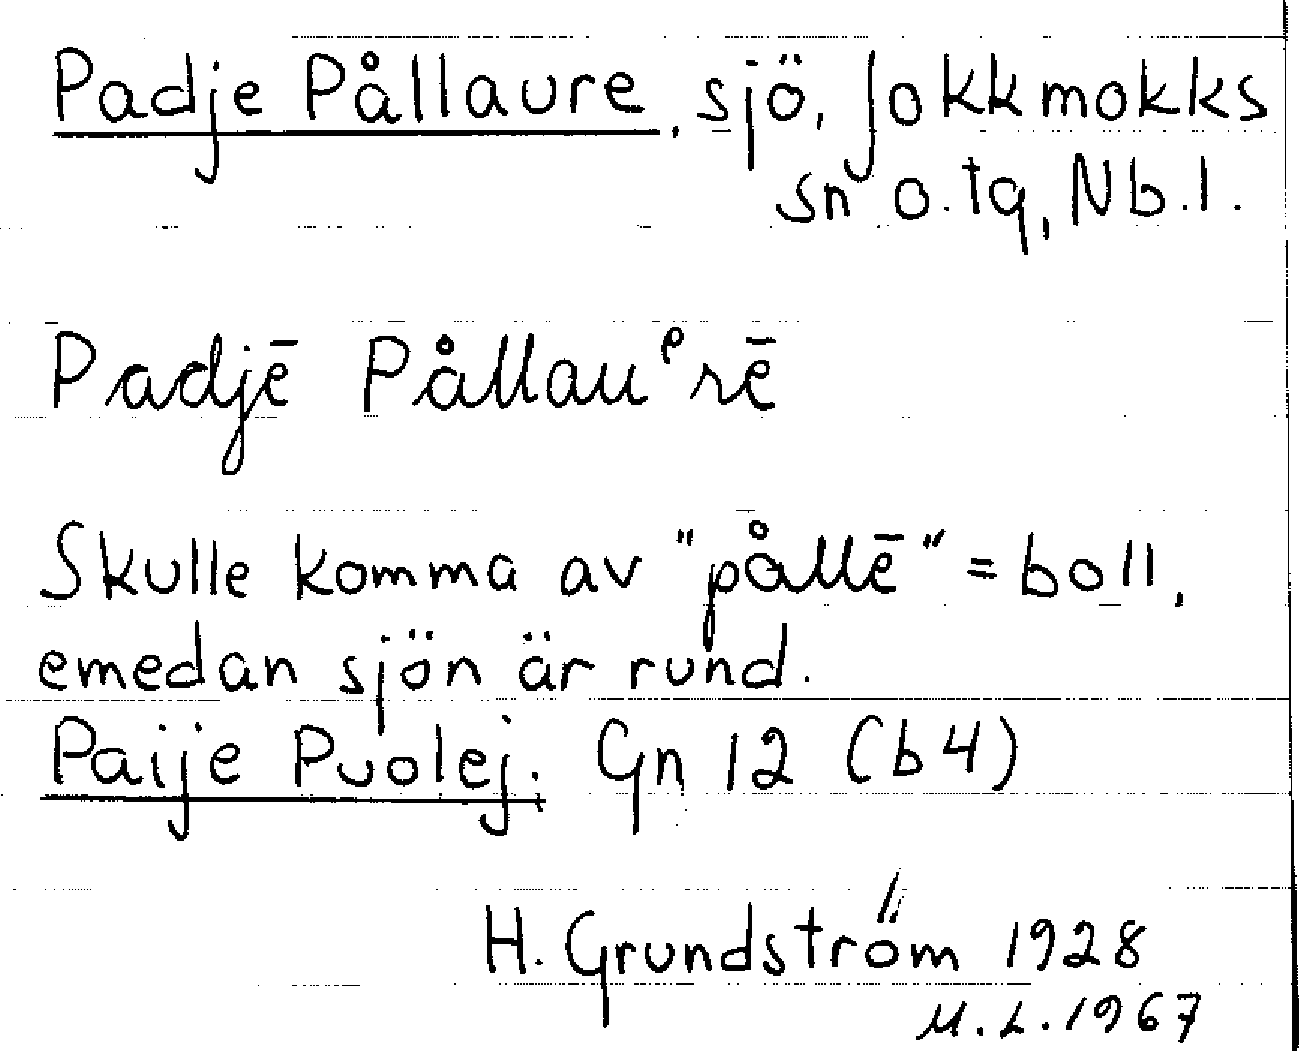 Padje Pållaure, sjö, Jokkmokks
sn o. tg, Nb.l.
Padjē Pållauᵉrē
Skulle komma av "pållē" = boll,
emedan sjön är rund.
Paije Puolej. Gn 12 (b4)
H. Grundström 1928
M.L. 1967